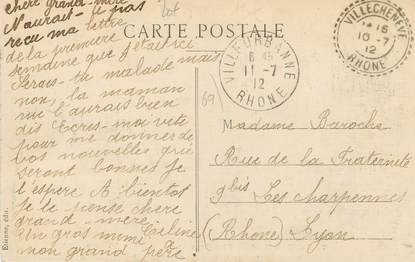 chère grand-mère
N'aurait-tu pas
reçu ma lettre
de la première
semaine que j'étais ici
Serais-tu malade mais
non, la maman
me l'aurais bien
dis Ecris-moi vite
pour me donner de
vos nouvelles qui
seront bonnes je
l'espère A bientôt
je te pense chère
grand-mère
Un gros mimi
mon grand père
CARTE POSTALE
VILLEURBANNE
11-7
12
RHONE
VILLECHENEVE
10-7
12
RHONE
69
Madame Baroche
Rue de la Fraternité
9bis Les Charpennes
(Rhône) Lyon
Etienne, édit.